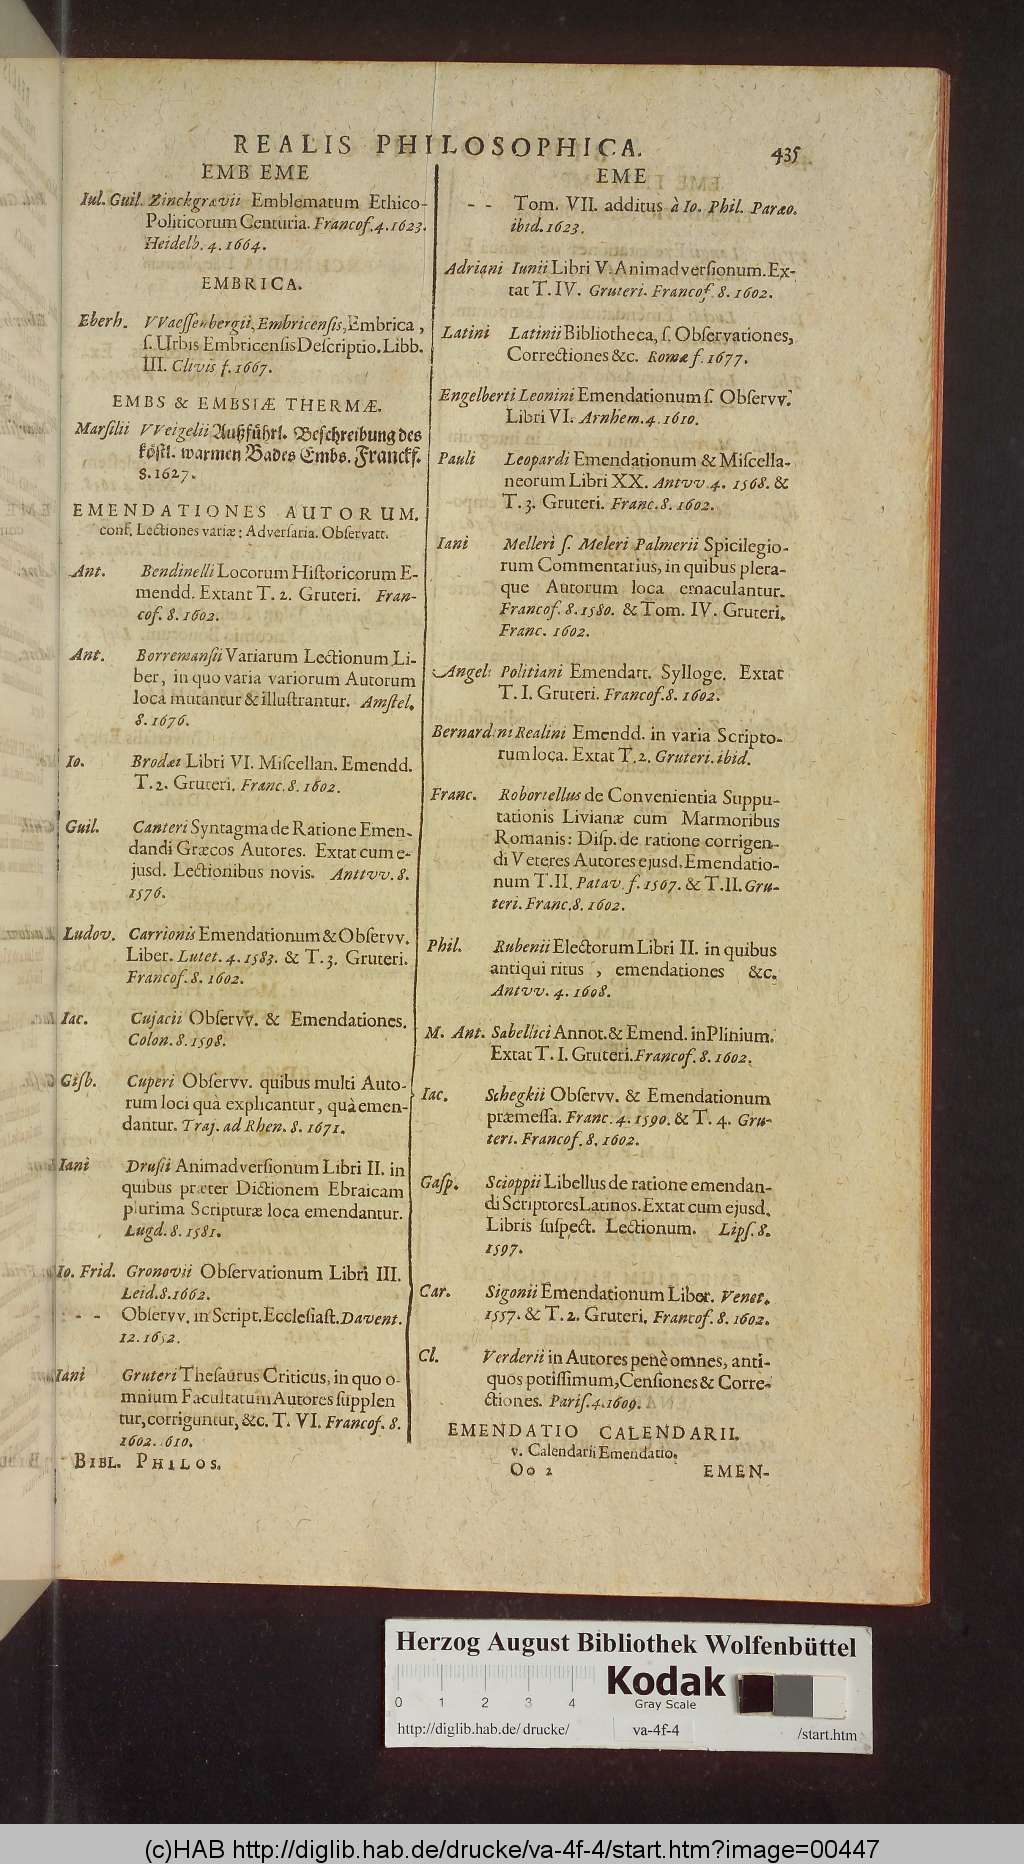 REALIS PHILOSOPHICA. 435
EMB EME
Iul. Guil. Zinckgrævii Emblematum Ethico-
Politicorum Centuria. Francof. 4. 1623.
Heidelb. 4. 1664.
EMBRICA.
Eberh. VVaessenbergii, Embricensis, Embrica,
ſ. Urbis Embricensis Deſcriptio. Libb.
III. Clivis f. 1667.
EMBS & EMBSIÆ THERMÆ.
Marſilii VVeigelii Außführl. Beſchreibung des
köſtl. warmen Bades Embs. Franckf.
8. 1627.
EMENDATIONES AUTORUM.
conf. Lectiones variæ: Adverſaria. Obſervatt.
Ant. Bendinelli Locorum Hiſtoricorum E-
mendd. Extant T. 2. Gruteri. Fran-
cof. 8. 1602.
Ant. Borremanſii Variarum Lectionum Li-
ber, in quo varia variorum Autorum
loca mutantur & illuſtrantur. Amſtel.
8. 1676.
Io. Brodæi Libri VI. Miſcellan. Emendd.
T. 2. Gruteri. Franc. 8. 1602.
Guil. Canteri Syntagma de Ratione Emen-
dandi Græcos Autores. Extat cum e-
jusd. Lectionibus novis. Anttvv. 8.
1576.
Ludov. Carrionis Emendationum & Obſervv.
Liber. Lutet. 4. 1583. & T. 3. Gruteri.
Francof. 8. 1602.
Iac. Cujacii Obſervv. & Emendationes.
Colon. 8. 1598.
Giſb. Cuperi Obſervv. quibus multi Auto-
rum loci quà explicantur, quà emen-
dantur. Traj. ad Rhen. 8. 1671.
Iani Druſii Animadverſionum Libri II. in
quibus præter Dictionem Ebraicam
plurima Scripturæ loca emendantur.
Lugd. 8. 1581.
Io. Frid. Gronovii Obſervationum Libri III.
Leid. 8. 1662.
- - Obſervv. in Script. Eccleſiaſt. Davent.
12. 1652.
Iani Gruteri Theſaurus Criticus, in quo o-
mnium Facultatum Autores ſupplen
tur, corriguntur, &c. T. VI. Francof. 8.
1602. 610.
BIBL. PHILOS.
EME
- - Tom. VII. additus à Io. Phil. Paræo.
ibid. 1623.
Adriani Iunii Libri V. Animadverſionum. Ex-
tat T. IV. Gruteri. Francof. 8. 1602.
Latini Latinii Bibliotheca, ſ. Obſervationes,
Correctiones &c. Romæ f. 1677.
Engelberti Leonini Emendationum ſ. Obſervv.
Libri VI. Arnhem. 4. 1610.
Pauli Leopardi Emendationum & Miſcella-
neorum Libri XX. Antvv 4. 1568. &
T. 3. Gruteri. Franc. 8. 1602.
Iani Melleri ſ. Meleri Palmerii Spicilegio-
rum Commentarius, in quibus plera-
que Autorum loca emaculantur.
Francof. 8. 1580. & Tom. IV. Gruteri.
Franc. 1602.
Angeli Politiani Emendatt. Sylloge. Extat
T. I. Gruteri. Francof. 8. 1602.
Bernardini Realini Emendd. in varia Scripto-
rum loca. Extat T. 2. Gruteri. ibid.
Franc. Robortellus de Convenientia Suppu-
tationis Livianæ cum Marmoribus
Romanis: Diſp. de ratione corrigen-
di Veteres Autores ejusd. Emendatio-
num T. II. Patav. f. 1567. & T. II. Gru-
teri. Franc. 8. 1602.
Phil. Rubenii Electorum Libri II. in quibus
antiqui ritus, emendationes &c.
Antvv. 4. 1608.
M. Ant. Sabellici Annot. & Emend. in Plinium.
Extat T. I. Gruteri. Francof. 8. 1602.
Iac. Schegkii Obſervv. & Emendationum
præmeſſa. Franc. 4. 1590. & T. 4. Gru-
teri. Francof. 8. 1602.
Gaſp. Scioppii Libellus de ratione emendan-
di Scriptores Latinos. Extat cum ejusd.
Libris ſuſpect. Lectionum. Lipſ. 8.
1597.
Car. Sigonii Emendationum Liber. Venet.
1557. & T. 2. Gruteri. Francof. 8. 1602.
Cl. Verderii in Autores penè omnes, anti-
quos potiſſimum, Cenſiones & Corre-
ctiones. Pariſ. 4. 1609.
EMENDATIO CALENDARII.
v. Calendarii Emendatio.
Oo 2 EMEN-
Herzog August Bibliothek Wolfenbüttel
Kodak
Gray Scale
0 1 2 3 4
http://diglib.hab.de/drucke/ va-4f-4 /start.htm
(c)HAB http://diglib.hab.de/drucke/va-4f-4/start.htm?image=00447